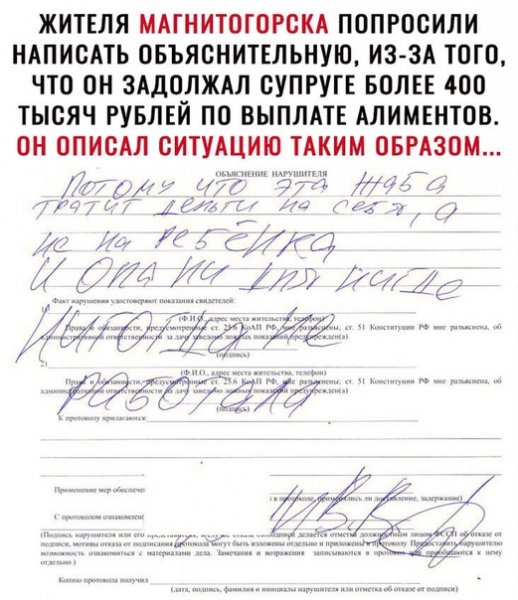 ЖИТЕЛЯ МАГНИТОГОРСКА ПОПРОСИЛИ
НАПИСАТЬ ОБЪЯСНИТЕЛЬНУЮ, ИЗ-ЗА ТОГО,
ЧТО ОН ЗАДОЛЖАЛ СУПРУГЕ БОЛЕЕ 400
ТЫСЯЧ РУБЛЕЙ ПО ВЫПЛАТЕ АЛИМЕНТОВ.
ОН ОПИСАЛ СИТУАЦИЮ ТАКИМ ОБРАЗОМ...
ОБЪЯСНЕНИЕ НАРУШИТЕЛЯ
Потому что эта жаба
тратит деньги на себя, а
не на ребёнка
и она ни дня нигде
Факт нарушения удостоверяют показания свидетелей:
1)
(Ф.И.О., адрес места жительства, телефон)
Права и обязанности, предусмотренные ст. 25.6 КоАП РФ, мне разъяснены; ст. 51 Конституции РФ мне разъяснена, об
административной ответственности за дачу заведомо ложных показаний предупрежден(а)
никогда не
(подпись)
2)
(Ф.И.О., адрес места жительства, телефон)
Права и обязанности, предусмотренные ст. 25.6 КоАП РФ, мне разъяснены; ст. 51 Конституции РФ мне разъяснена, об
административной ответственности за дачу заведомо ложных показаний предупрежден(а)
работала
(подпись)
К протоколу прилагаются:
Применение мер обеспече
в протоколе, применялись ли доставление, задержание)
С протоколом ознакомлен(
(Подпись нарушителя или его делается отметка должностным лицом ФССП об отказе от
подписи, мотивы отказа от подписания протокола могут быть изложены отдельно и приложены к протоколу. Предоставить нарушителю
возможность ознакомиться с материалами дела. Замечания и возражения записываются в протокол или приобщаются к нему
отдельно.)
Копию протокола получил
(дата, подпись, фамилия и инициалы нарушителя или отметка об отказе от подписи)